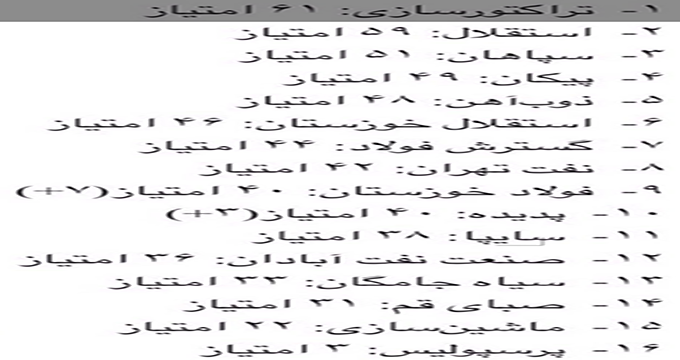 ۱- تراکتورسازی: ۶۱ امتیاز
۲- استقلال: ۵۹ امتیاز
۳- سپاهان: ۵۱ امتیاز
۴- پیکان: ۴۹ امتیاز
۵- ذوب‌آهن: ۴۸ امتیاز
۶- استقلال خوزستان: ۴۶ امتیاز
۷- گسترش فولاد: ۴۴ امتیاز
۸- نفت تهران: ۴۲ امتیاز
۹- فولاد خوزستان: ۴۰ امتیاز(۷+)
۱۰- پدیده: ۴۰ امتیاز(۳+)
۱۱- سایپا: ۳۸ امتیاز
۱۲- صنعت نفت آبادان: ۳۶ امتیاز
۱۳- سیاه جامگان: ۳۳ امتیاز
۱۴- صبای قم: ۳۱ امتیاز
۱۵- ماشین‌سازی: ۲۲ امتیاز
۱۶- پرسپولیس: ۳ امتیاز